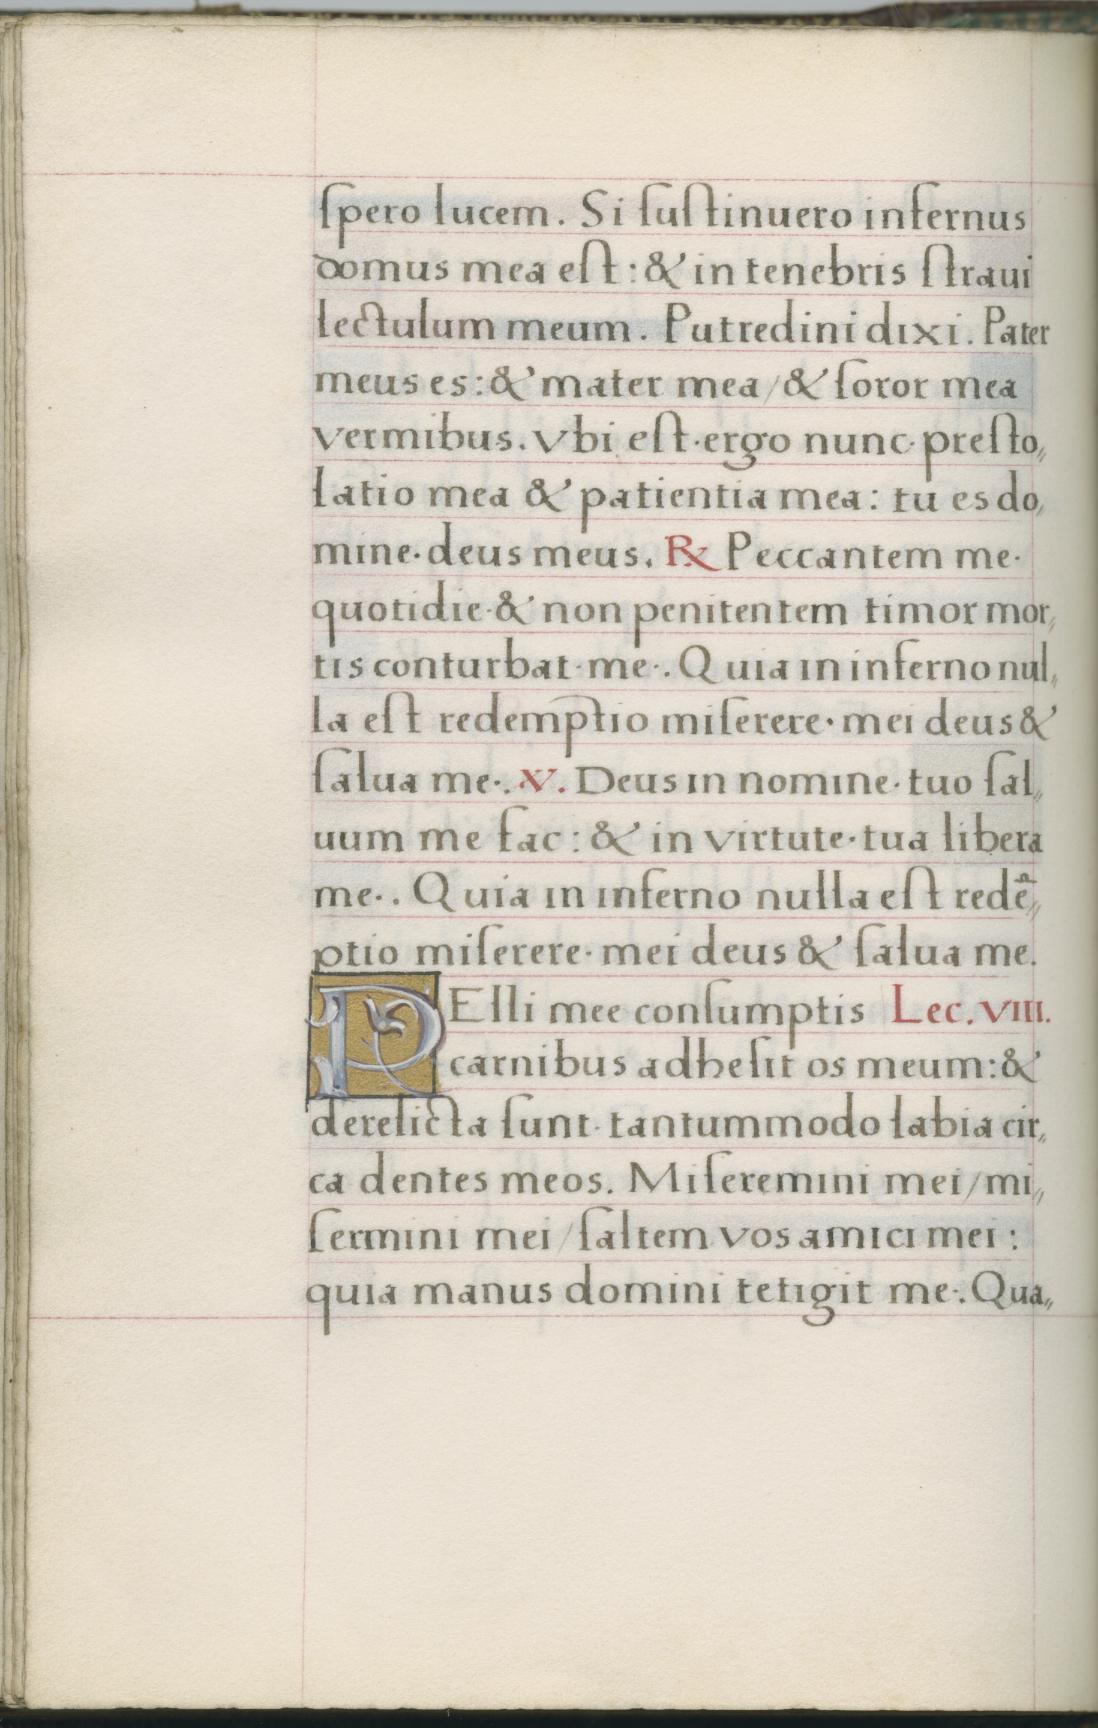 ſpero lucem. Si ſuſtinuero infernus
domus mea eſt: & in tenebris ſtraui
lectulum meum. Putredini dixi. Pater
meus es: & mater mea / & ſoror mea
vermibus. vbi eſt ergo nunc preſto„
latio mea & patientia mea: tu es do„
mine deus meus. ℞ Peccantem me
quotidie & non penitentem timor mor„
tis conturbat me. Quia in inferno nul„
la eſt redemptio miſerere mei deus &
ſalua me. v. Deus in nomine tuo ſal„
uum me fac: & in virtute tua libera
me. Quia in inferno nulla eſt redẽ„
ptio miſerere mei deus & ſalua me.
PElli mee conſumptis Lec. VIII.
carnibus adheſit os meum: &
derelicta ſunt tantummodo labia cir„
ca dentes meos. Miſeremini mei / mi„
ſermini mei / ſaltem vos amici mei:
quia manus domini tetigit me. Qua„